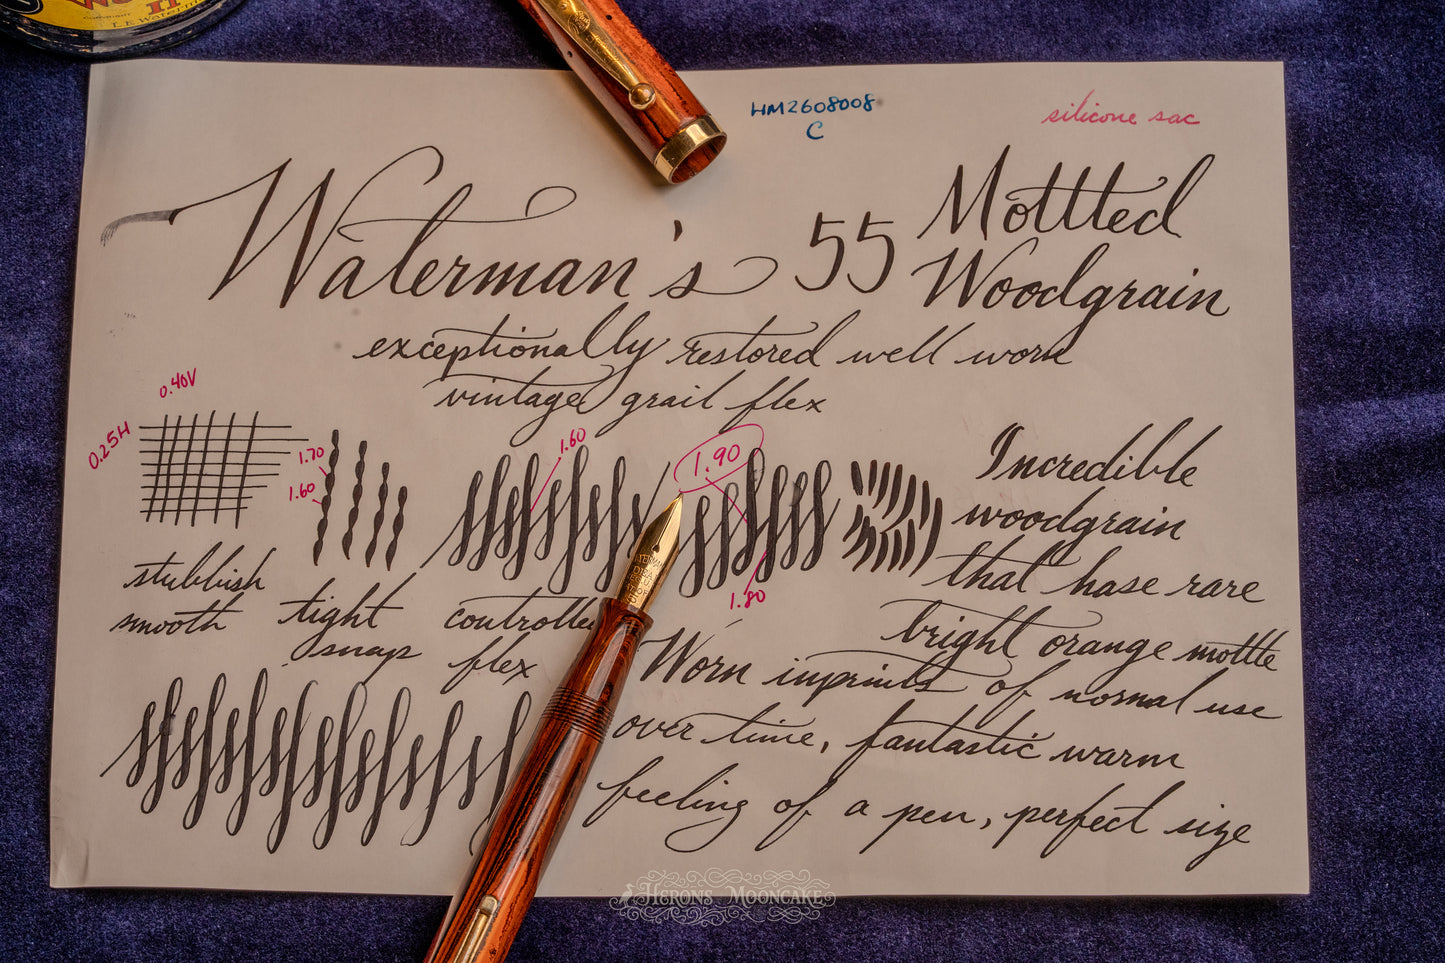 HM2608008
C
silicone sac
Waterman's 55 Mottled
Woodgrain
exceptionally restored well worn
vintage grail flex
0.40V
0.25H
1.70
1.60
1.60
1.90
1.80
stubbish
smooth
tight
snaps
controlled
flex
Incredible
woodgrain
that hase rare
bright orange mottle
Worn imprints of normal use
over time, fantastic warm
feeling of a pen, perfect size
Herons Mooncake